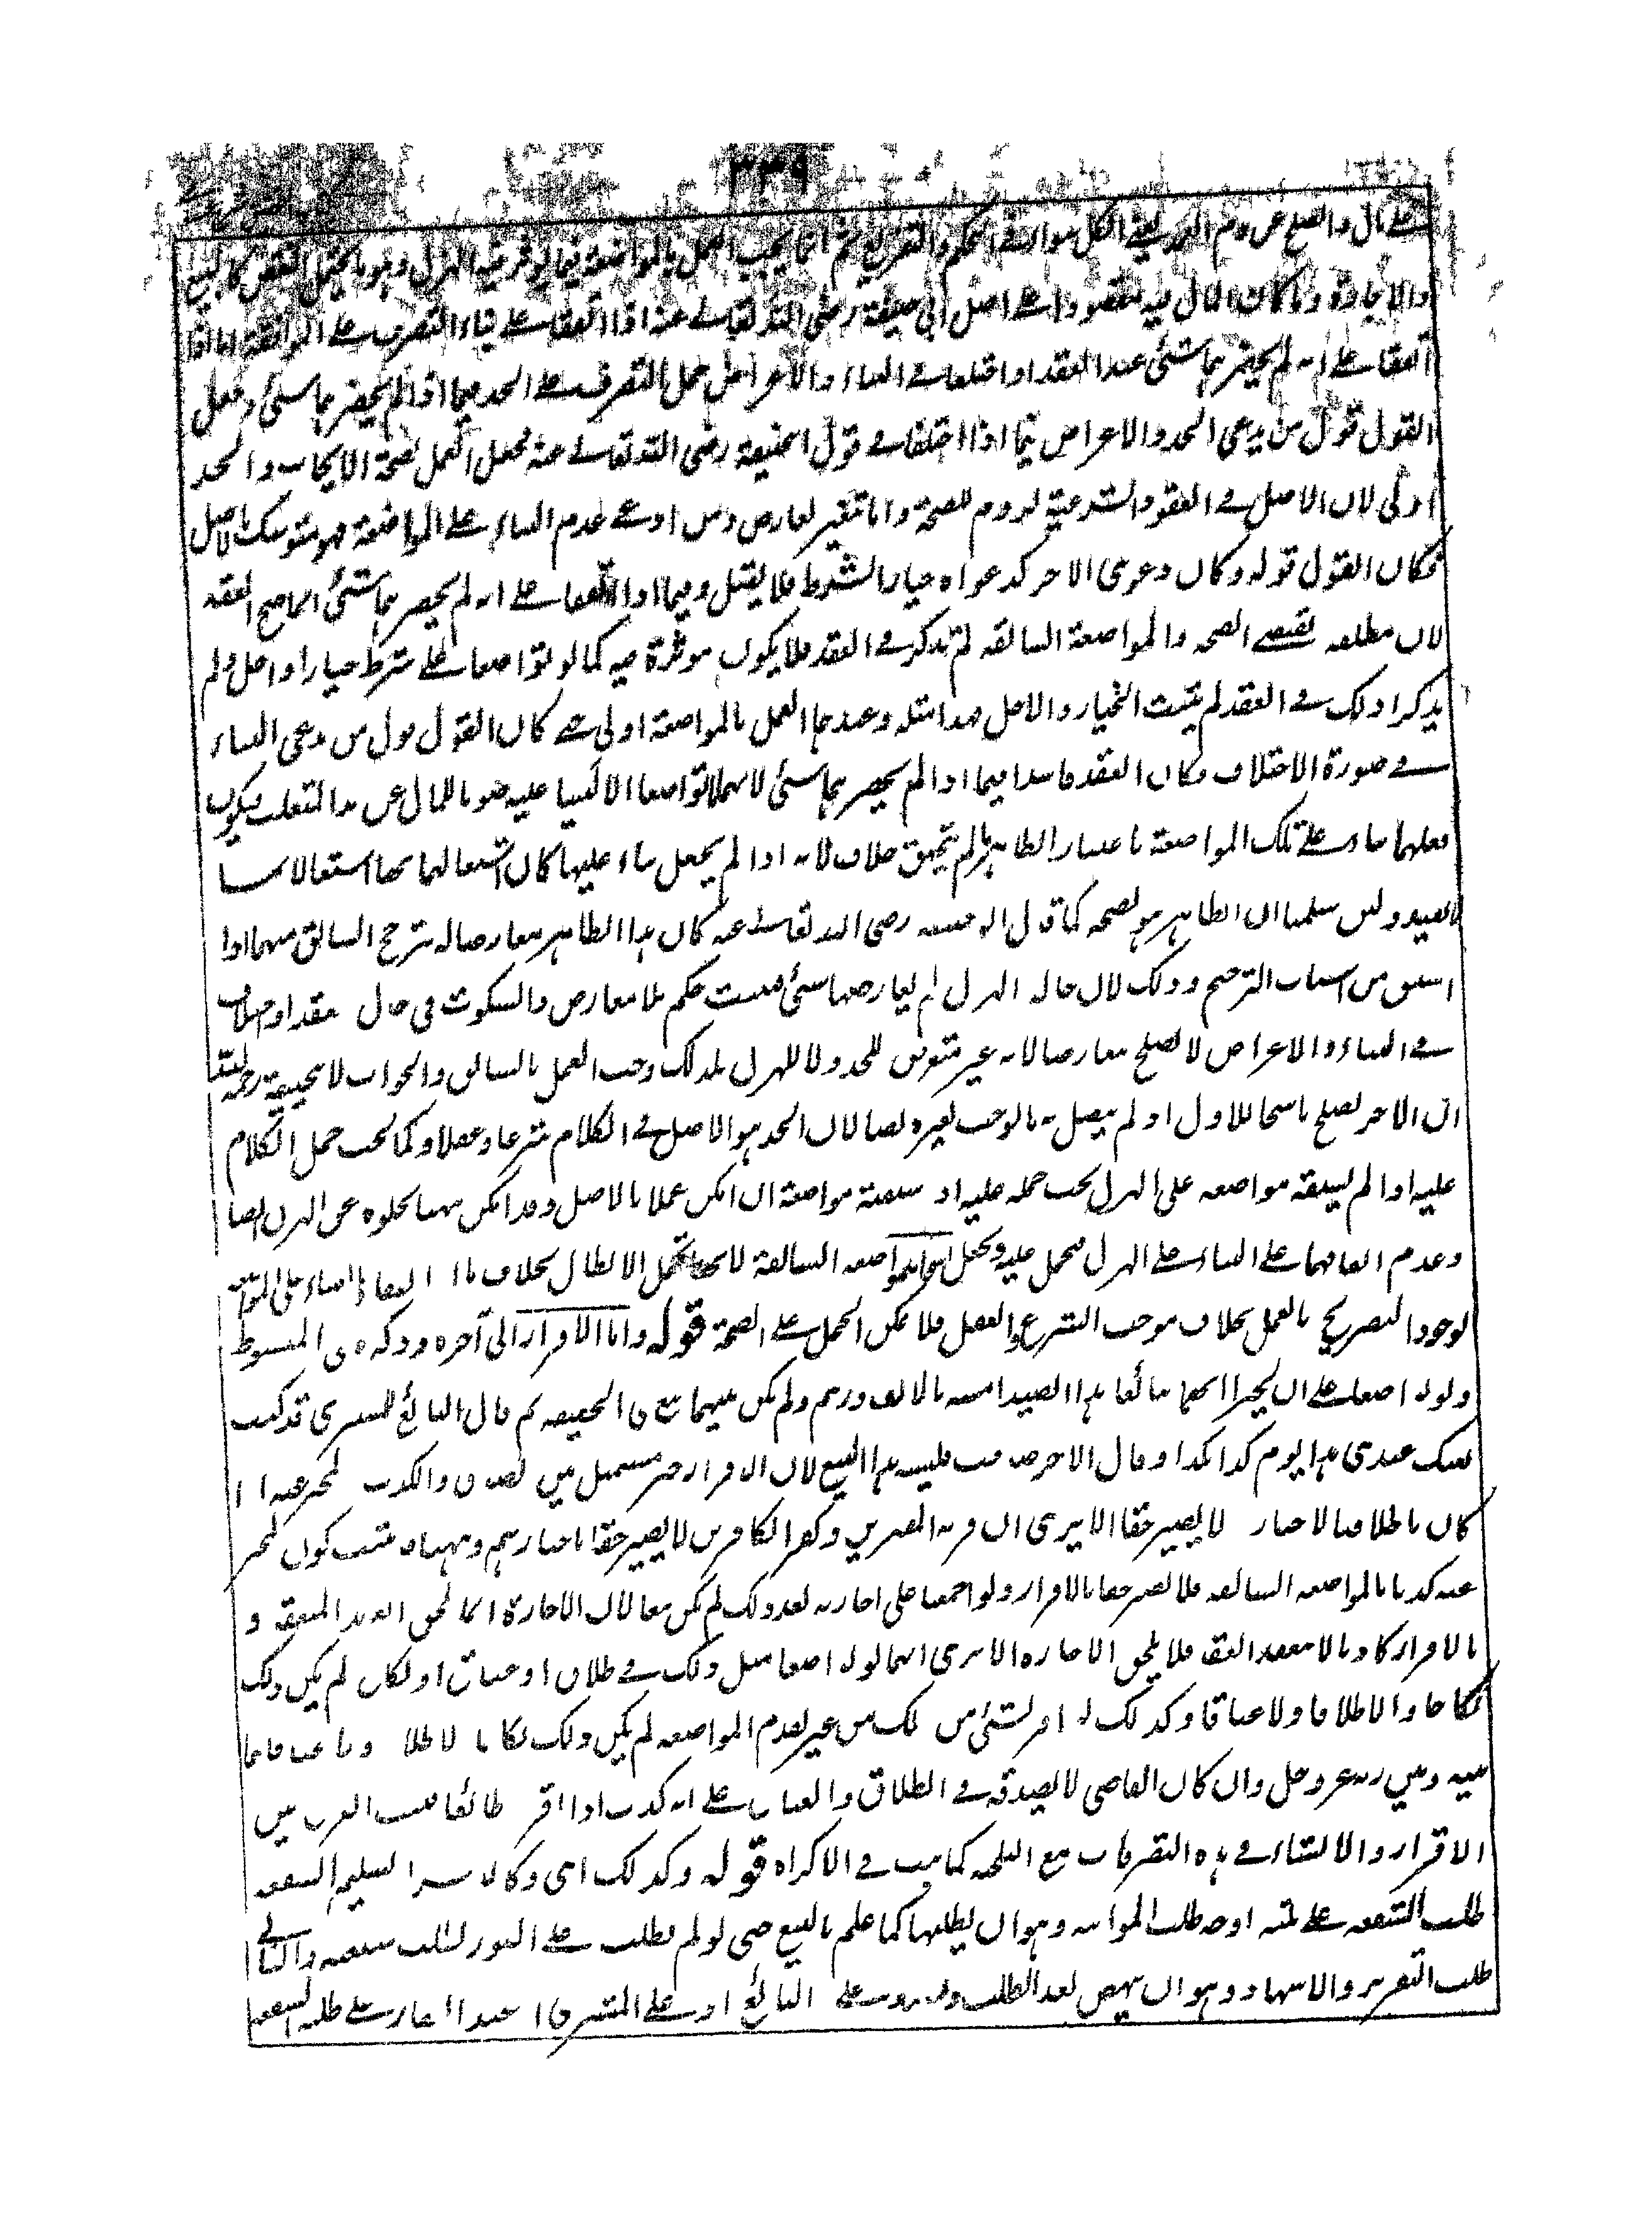 ٣٣٩
على مال والصلح عن دم العمد يعني الكل سواء في الحكم والتفريع ثم انما يجب العمل بالمواضعة فيما يؤثر فيه الهزل وهو ما يحتمل النقض كالبيع
والاجارة وما كان المال فيه مقصودا على اصل ابي حنيفة رضي الله تعالى عنه اذا اتفقا على بناء التصرف على المواضعة اما اذا
اتفقا على انه لم يحضرهما شئ عند العقد او اختلفا في البناء والاعراض حمل التصرف على الجد فيما اذا لم يحضرهما شئ وجعل
القول قول من يدعى الجد والاعراض فيما اذا اختلفا في قول ابيحنيفة رضى الله تعالى عنه فجعل العمل بصحة الايجاب والجد
اولى لان الاصل فى العقود الشرعية لزوم الصحة وانما تتغير لعارض ومن ادعى عدم البناء على المواضعة فهو متمسك بالاصل
فكان القول قوله وكان دعوى الاخر كدعواه خيار الشرط فلا يقبل وفيما اذا اتفقا على انه لم يحضرهما شئ انما صح العقد
لان مطلقه يقتضى الصحة والمواضعة السابقة لم تذكر فى العقد فلا يكون مؤثرة فيه كما لو تواضعا على شرط خيار او اجل ولم
يذكرا ذلك فى العقد لم يثبت الخيار والاجل فهذا مثله وعندهما العمل بالمواضعة اولى حتى كان القول قول من يدعى البناء
فى صورة الاختلاف وكان العقد فاسدا فيما اذا لم يحضرهما شئ لانهما لا تواضعا الا ليبنيا عليه صونا للمال عن يد المتغلب فيكون
فعلهما بناء على تلك المواضعة باعتبار الظاهر ما لم يتحقق خلافه لانه اذا لم يجعل بناء عليها كان اشتغالهما بها اشتغالا بما
لا يفيد ولئن سلمنا ان الظاهر هو الصحة كما قال ابو حنيفة رضى الله تعالى عنه كان هذا الظاهر معارضا له فترجح السابق منهما اذا
السبق من اسباب الترجيح وذلك لان حالة الهزل لم يعارضها شئ فيثبت حكمه بلا معارض والسكوت فى حال العقد او اختلاف
فى البناء والاعراض لا يصلح معارضا لانه غير متعرض للجد ولا للهزل فلذلك وجب العمل بالسابق والجواب لابيحنيفة رحمه الله
ان الاخر يصلح ناسخا للاول اذا لم يتصل به ما يوجب تغيره نصا لان الجد هو الاصل فى الكلام شرعا وعقلا وكما يجب حمل الكلام
عليه اذا لم يسبقه مواضعة على الهزل يجب حمله عليه اذا سبقته مواضعة ان امكن عملا بالاصل وقد امكن ههنا لخلوه عن الهزل نصا
وعدم اتفاقهما على البناء على الهزل فيحمل عليه ويجعل المواضعة السابقة لانها تحتمل الابطال بخلاف ما اذا اتفقا على البناء على المواضعة
لوجود التصريح بالعمل بخلاف موجب الشرع والعقل فلا يمكن الحمل على الصحة قوله واما الاقرار الى آخره وذكر فى المبسوط
ولو تواضعا على ان يخبرا انهما تبايعا هذا العبد امس بالف درهم ولم يكن بينهما بيع فى الحقيقة ثم قال البائع للمشترى قد كنت
بعتك عبدى هذا يوم كذا بكذا وقال الاخر صدقت فليس هذا ببيع لان الاقرار خبر متمثل بين الصدق والكذب والمخبر عنه اذا
كان باطلا فبالاخبار لا يصير حقا الا يرى ان فرية المفترين وكفر الكافرين لا يصير حقا باخبارهم وههنا ثبت كون المخبر
عنه كذبا بالمواضعة السابقة فلا يصير حقا بالاقرار ولو اجمعا على اجازته بعد ذلك لم يكن بيعا لان الاجازة انما تلحق العقد المنعقد و
بالاقرار كاذبا لا ينعقد العقد فلا يلحقه الاجازة الا يرى انهما لو تواضعا مثل ذلك فى طلاق او عتاق او نكاح لم يكن ذلك
نكاحا ولا طلاقا ولا عتاقا وكذلك لو اقر بشئ من ذلك من غير تقدم المواضعة لم يكن ذلك نكاحا ولا طلاقا ولا عتاقا فيما
بينه وبين ربه عز وجل وان كان القاضى لا يصدقه فى الطلاق والعتاق على انه كذب اذا اقر طائعا فثبت الفرق بين
الاقرار والانشاء فى هذه التصرفات مع التلجئة كما يثبت فى الاكراه قوله وكذلك اى وكالابراء تسليم الشفعة
طلب الشفعة على ثلثة اوجه طلب المواثبة وهو ان يطلبها كما علم بالبيع حتى لو لم يطلب على الفور بطلت شفعته والثانى
طلب التقرير والاشهاد وهو ان ينهض بعد الطلب ويشهد على البائع او على المشترى او عند العقار على طلب الشفعة